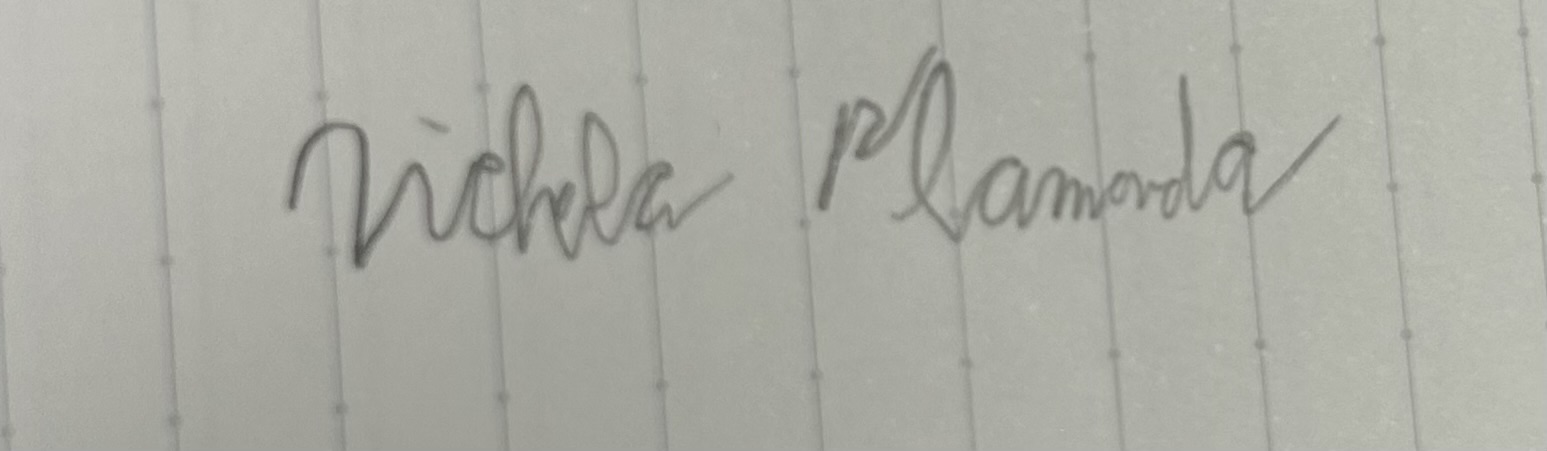 Nichela Mamonda